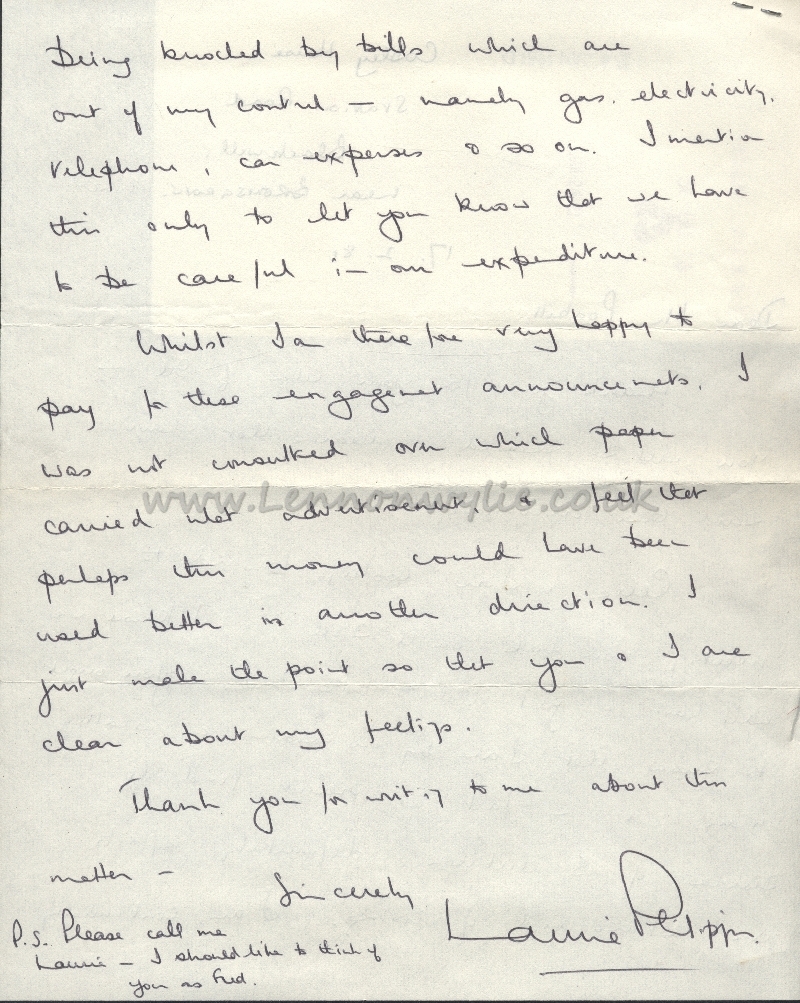 being knocked by bills which are
out of my control – namely gas. electricity.
telephone, car expenses & so on. I mention
this only to let you know that we have
to be careful in our expenditure.
Whilst I am therefore very happy to
pay for these engagement announcements, I
was not consulted over which paper
www.Lennonwylie.co.uk
carried what advertisement, & feel that
perhaps this money could have been
used better in another direction. I
just make the point so that you & I are
clear about my feelings.
Thank you for writing to me about this
matter –
Sincerely
Laurie Philippin.
P.S. Please call me
Laurie – I should like to think of
you as Fred.